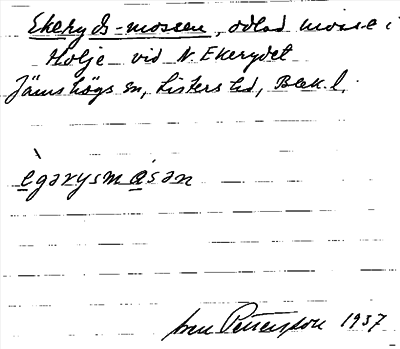 Ekeryds-mossen, odlad mosse i
Holje vid N. Ekerydet
Jämshögs sn, Listers hd, Blek. l.
ègərysmåsən
Sven Pettersson 1937